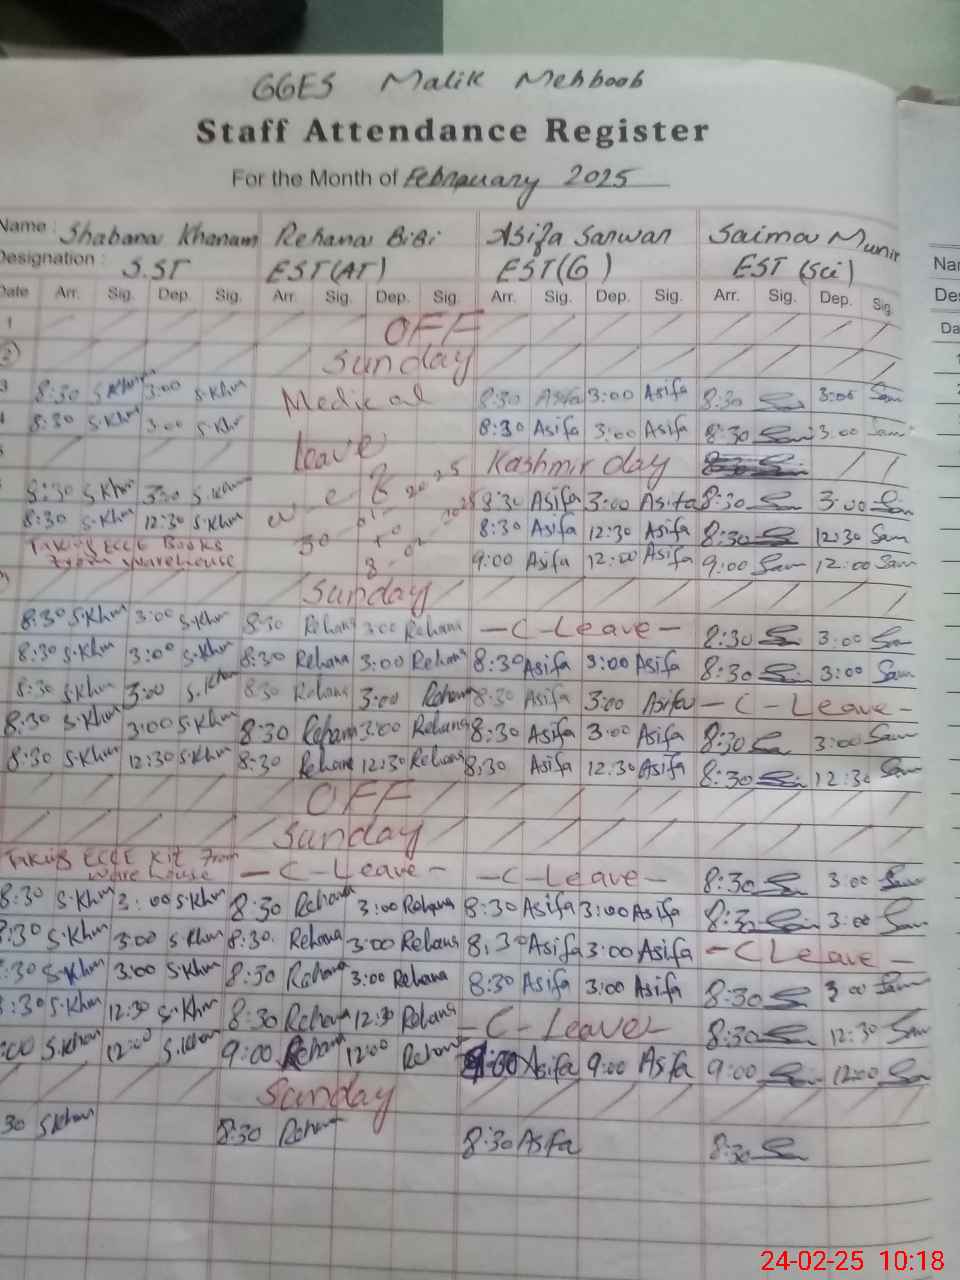 GGES Malik Mehboob
Staff Attendance Register
For the Month of Febrauary 2025
Name : Shabana Khanam Rehana BiBi Asifa Sarwar Saima Munir
Designation : S.ST EST(AT) EST(G) EST (Sci)
Date Arr. Sig. Dep. Sig. Arr. Sig. Dep. Sig. Arr. Sig. Dep. Sig. Arr. Sig. Dep. Sig.
1 OFF
2 Sunday
3 8:30 S.Khm 3:00 S.Khm Medical 8:30 Asifa 3:00 Asifa 8:30 3:00 Sam
4 8:30 S.Khm 3:00 S.Khr 8:30 Asifa 3:00 Asifa 8:30 3:00 Sam
leave Kashmir day
8:30 S.Khm 3:00 S.Khm 8:30 Asifa 3:00 Asifa 8:30 3:00
8:30 S.Khm 12:30 S.Khm 30 8:30 Asifa 12:30 Asifa 8:30 12:30 Sam
Taking ECCE Books
From warehouse 9:00 Asifa 12:00 Asifa 9:00 Sam 12:00 Sam
Sunday
8:30 S.Khm 3:00 S.Khm 8:30 Rehana 3:00 Rehana - C - Leave - 8:30 3:00 Sam
8:30 S.Khm 3:00 S.Khm 8:30 Rehana 3:00 Rehana 8:30 Asifa 3:00 Asifa 8:30 3:00 Sam
8:30 S.Khm 3:00 S.Khm 8:30 Rehana 3:00 Rehana 8:30 Asifa 3:00 Asifa - C - Leave -
8:30 S.Khm 3:00 S.Khm 8:30 Rehana 3:00 Rehana 8:30 Asifa 3:00 Asifa 8:30 3:00 Sam
8:30 S.Khm 12:30 S.Khm 8:30 Rehana 12:30 Rehana 8:30 Asifa 12:30 Asifa 8:30 12:30 Sam
OFF
Sunday
Taking ECCE Kit From
ware house - C - Leave - - C - Leave - 8:30 3:00 Sam
8:30 S.Khm 3:00 S.Khm 8:30 Rehana 3:00 Rehana 8:30 Asifa 3:00 Asifa 8:30 3:00 Sam
8:30 S.Khm 3:00 S.Khm 8:30 Rehana 3:00 Rehana 8:30 Asifa 3:00 Asifa - C Leave -
:30 S.Khm 3:00 S.Khm 8:30 Rehana 3:00 Rehana 8:30 Asifa 3:00 Asifa 8:30 3:00 Sam
:30 S.Khm 12:30 S.Khm 8:30 Rehana 12:30 Rehana - C - Leave - 8:30 12:30 Sam
:00 S.Khan 12:00 S.Khan 9:00 Rehana 12:00 Rehana Asifa 9:00 Asifa 9:00 12:00 Sam
Sunday
30 S.Khan 8:30 Rehana 8:30 Asifa 8:30
24-02-25 10:18